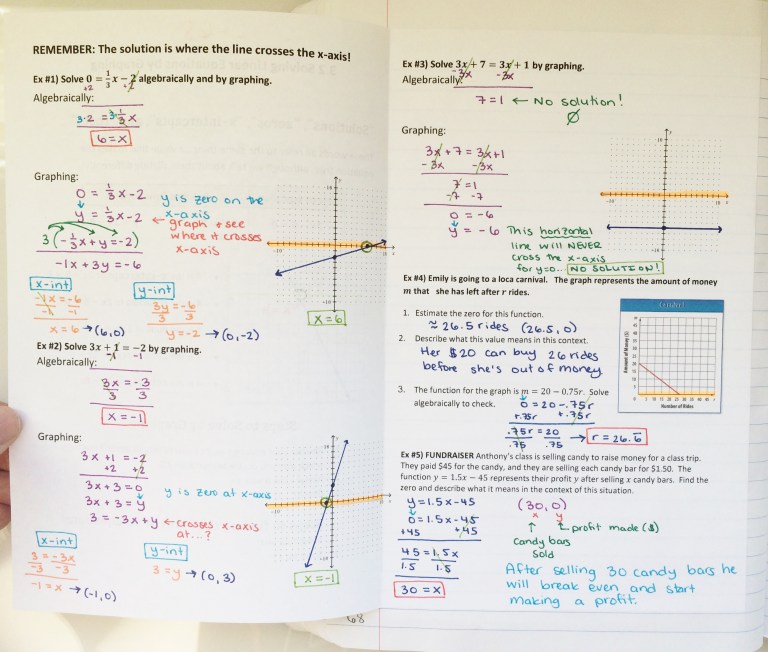 REMEMBER: The solution is where the line crosses the x-axis!
Ex #1) Solve 0 = 1/3 x − 2 algebraically and by graphing.
+2 +2
Algebraically:
3·2 = 3·1/3 x
6 = x
Graphing:
0 = 1/3 x - 2
y = 1/3 x - 2
3(-1/3 x + y = -2)
-1x + 3y = -6
y is zero on the
x-axis
← graph + see
where it crosses
x-axis
x-int
-1x = -6
-1 -1
x = 6 → (6,0)
y-int
3y = -6
3 3
y = -2 → (0,-2)
x = 6
Ex #2) Solve 3x + 1 = −2 by graphing.
-1 -1
Algebraically:
3x = -3
3 3
x = -1
Graphing:
3x + 1 = -2
+2 +2
3x + 3 = 0
3x + 3 = y
3 = -3x + y
y is zero at x-axis
← crosses x-axis
at...?
x-int
3 = -3x
-3 -3
-1 = x → (-1,0)
y-int
3 = y → (0,3)
x = -1
68
Ex #3) Solve 3x + 7 = 3x + 1 by graphing.
Algebraically:
-3x -3x
7 = 1 ← No solution!
∅
Graphing:
3x + 7 = 3x + 1
- 3x -3x
7 = 1
-7 -7
0 = -6
y = -6
This horizontal
line will NEVER
cross the x-axis
for y=0... NO SOLUTION!
Ex #4) Emily is going to a loca carnival. The graph represents the amount of money
m that she has left after r rides.
1. Estimate the zero for this function.
≈ 26.5 rides (26.5, 0)
2. Describe what this value means in this context.
Her $20 can buy 26 rides
before she's out of money
3. The function for the graph is m = 20 − 0.75r. Solve
algebraically to check.
0 = 20 - .75r
+.75r +.75r
.75r = 20
.75 .75
→ r = 26.6̅
Amount of Money ($)
Number of Rides
Ex #5) FUNDRAISER Anthony's class is selling candy to raise money for a class trip.
They paid $45 for the candy, and they are selling each candy bar for $1.50. The
function y = 1.5x − 45 represents their profit y after selling x candy bars. Find the
zero and describe what it means in the context of this situation.
y = 1.5x - 45
0 = 1.5x - 45
+45 +45
45 = 1.5x
1.5 1.5
30 = x
(30, 0)
x y
profit made ($)
candy bars
sold
After selling 30 candy bars he
will break even and start
making a profit.